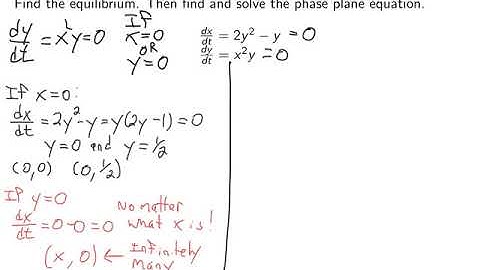 Find the equilibrium. Then find and solve the phase plane equation.
dy/dt = x²y = 0
If
x=0
OR
y=0
dx/dt = 2y² − y = 0
dy/dt = x²y = 0
If x=0:
dx/dt = 2y² − y = y(2y−1) = 0
y=0 and y=1/2
(0,0) (0,1/2)
If y=0
dx/dt = 0−0 = 0
No matter
what x is!
(x, 0) ← Infinitely
many